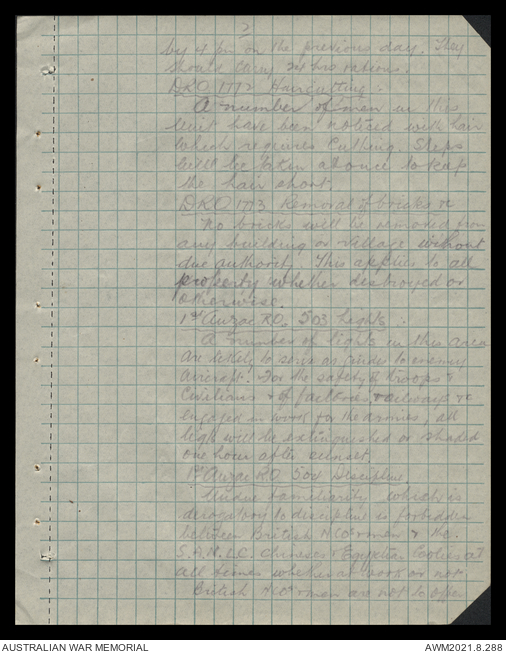 2
by 4 pm on the previous day. They
should carry 24 hrs rations.
DRO 1772 Haircutting :
A number of men in this
Unit have been noticed with hair
which requires Cutting. Steps
will be taken at once to keep
the hair short.
DRO 1773 Removal of bricks &c
No bricks will be removed from
any building or village without
due authority. This applies to all
property whether destroyed or
otherwise.
1st Anzac R.O. 503 Lights :
A number of lights in this area
are likely to serve as guides to enemy
aircraft. For the safety of troops &
Civilians & of factories, railways &c
engaged in work for the armies, all
lights will be extinguished or shaded
one hour after sunset.
1st Anzac R.O. 504 Discipline
Undue familiarity which is
derogatory to discipline is forbidden
between British NCOs & men & the
S.A.N.L.C. Chinese & Egyptian Coolies at
all times whether at work or not.
British NCOs & men are not to offer
AUSTRALIAN WAR MEMORIAL
AWM2021.8.288